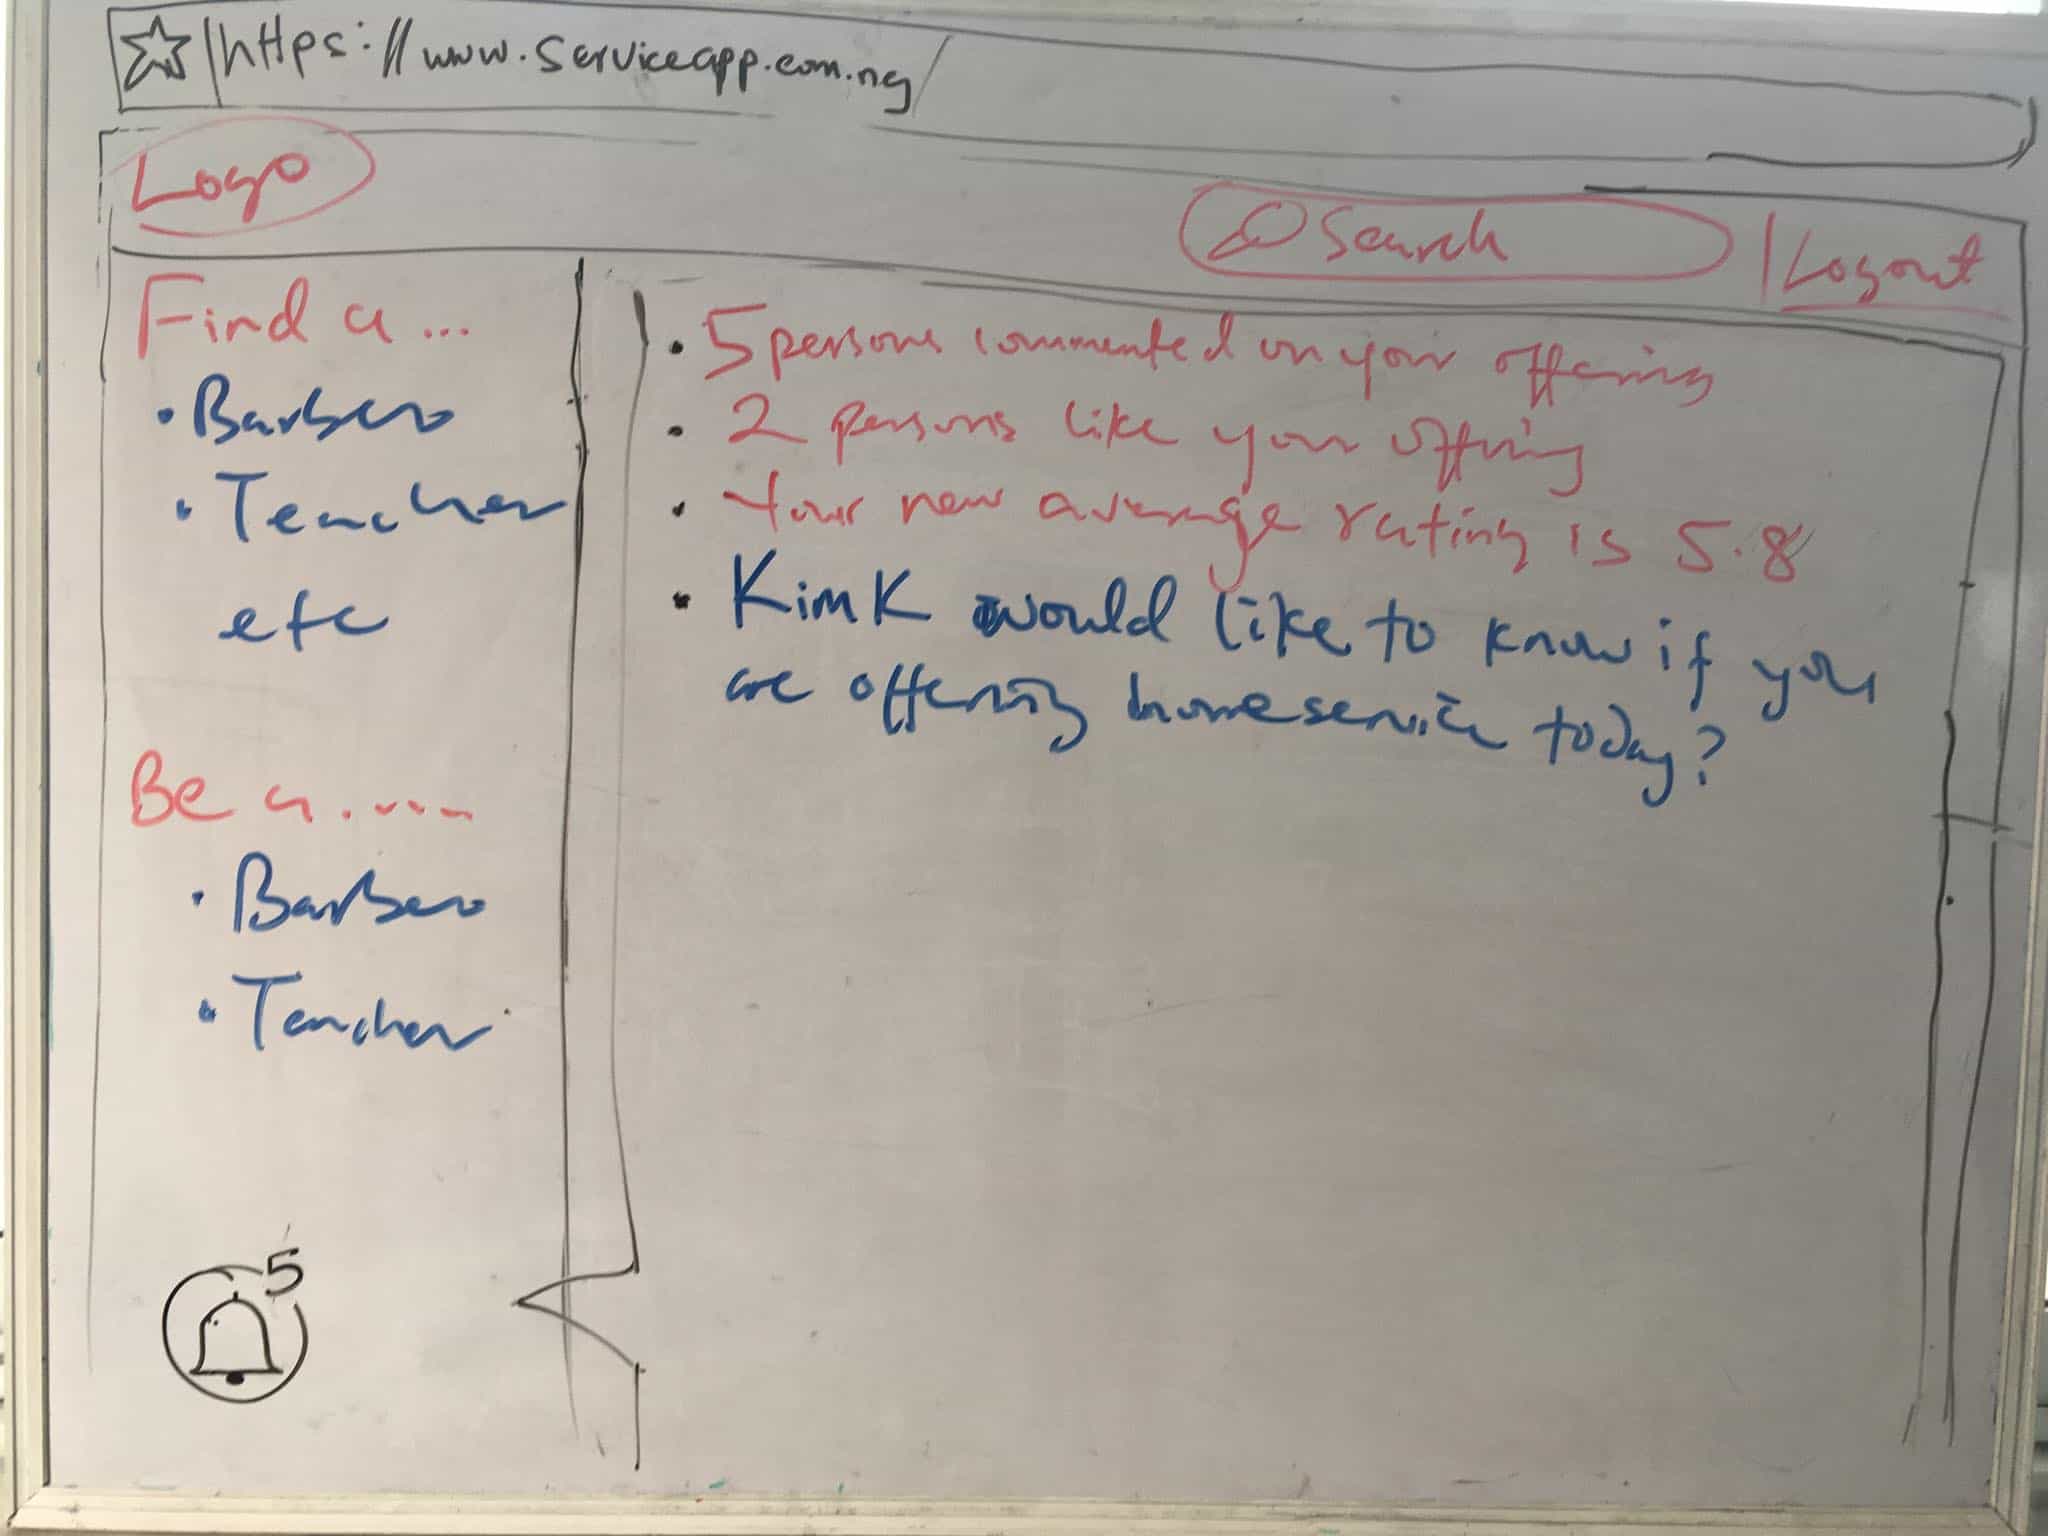 https://www.serviceapp.com.ng/
Logo
Search | Logout
Find a ...
• Barber
• Teacher
etc
Be a .....
• Barber
• Teacher
5
• 5 persons commented on your offering
• 2 persons like your offring
• Your new average rating is 5.8
• Kim K would like to know if you
are offering home service today?